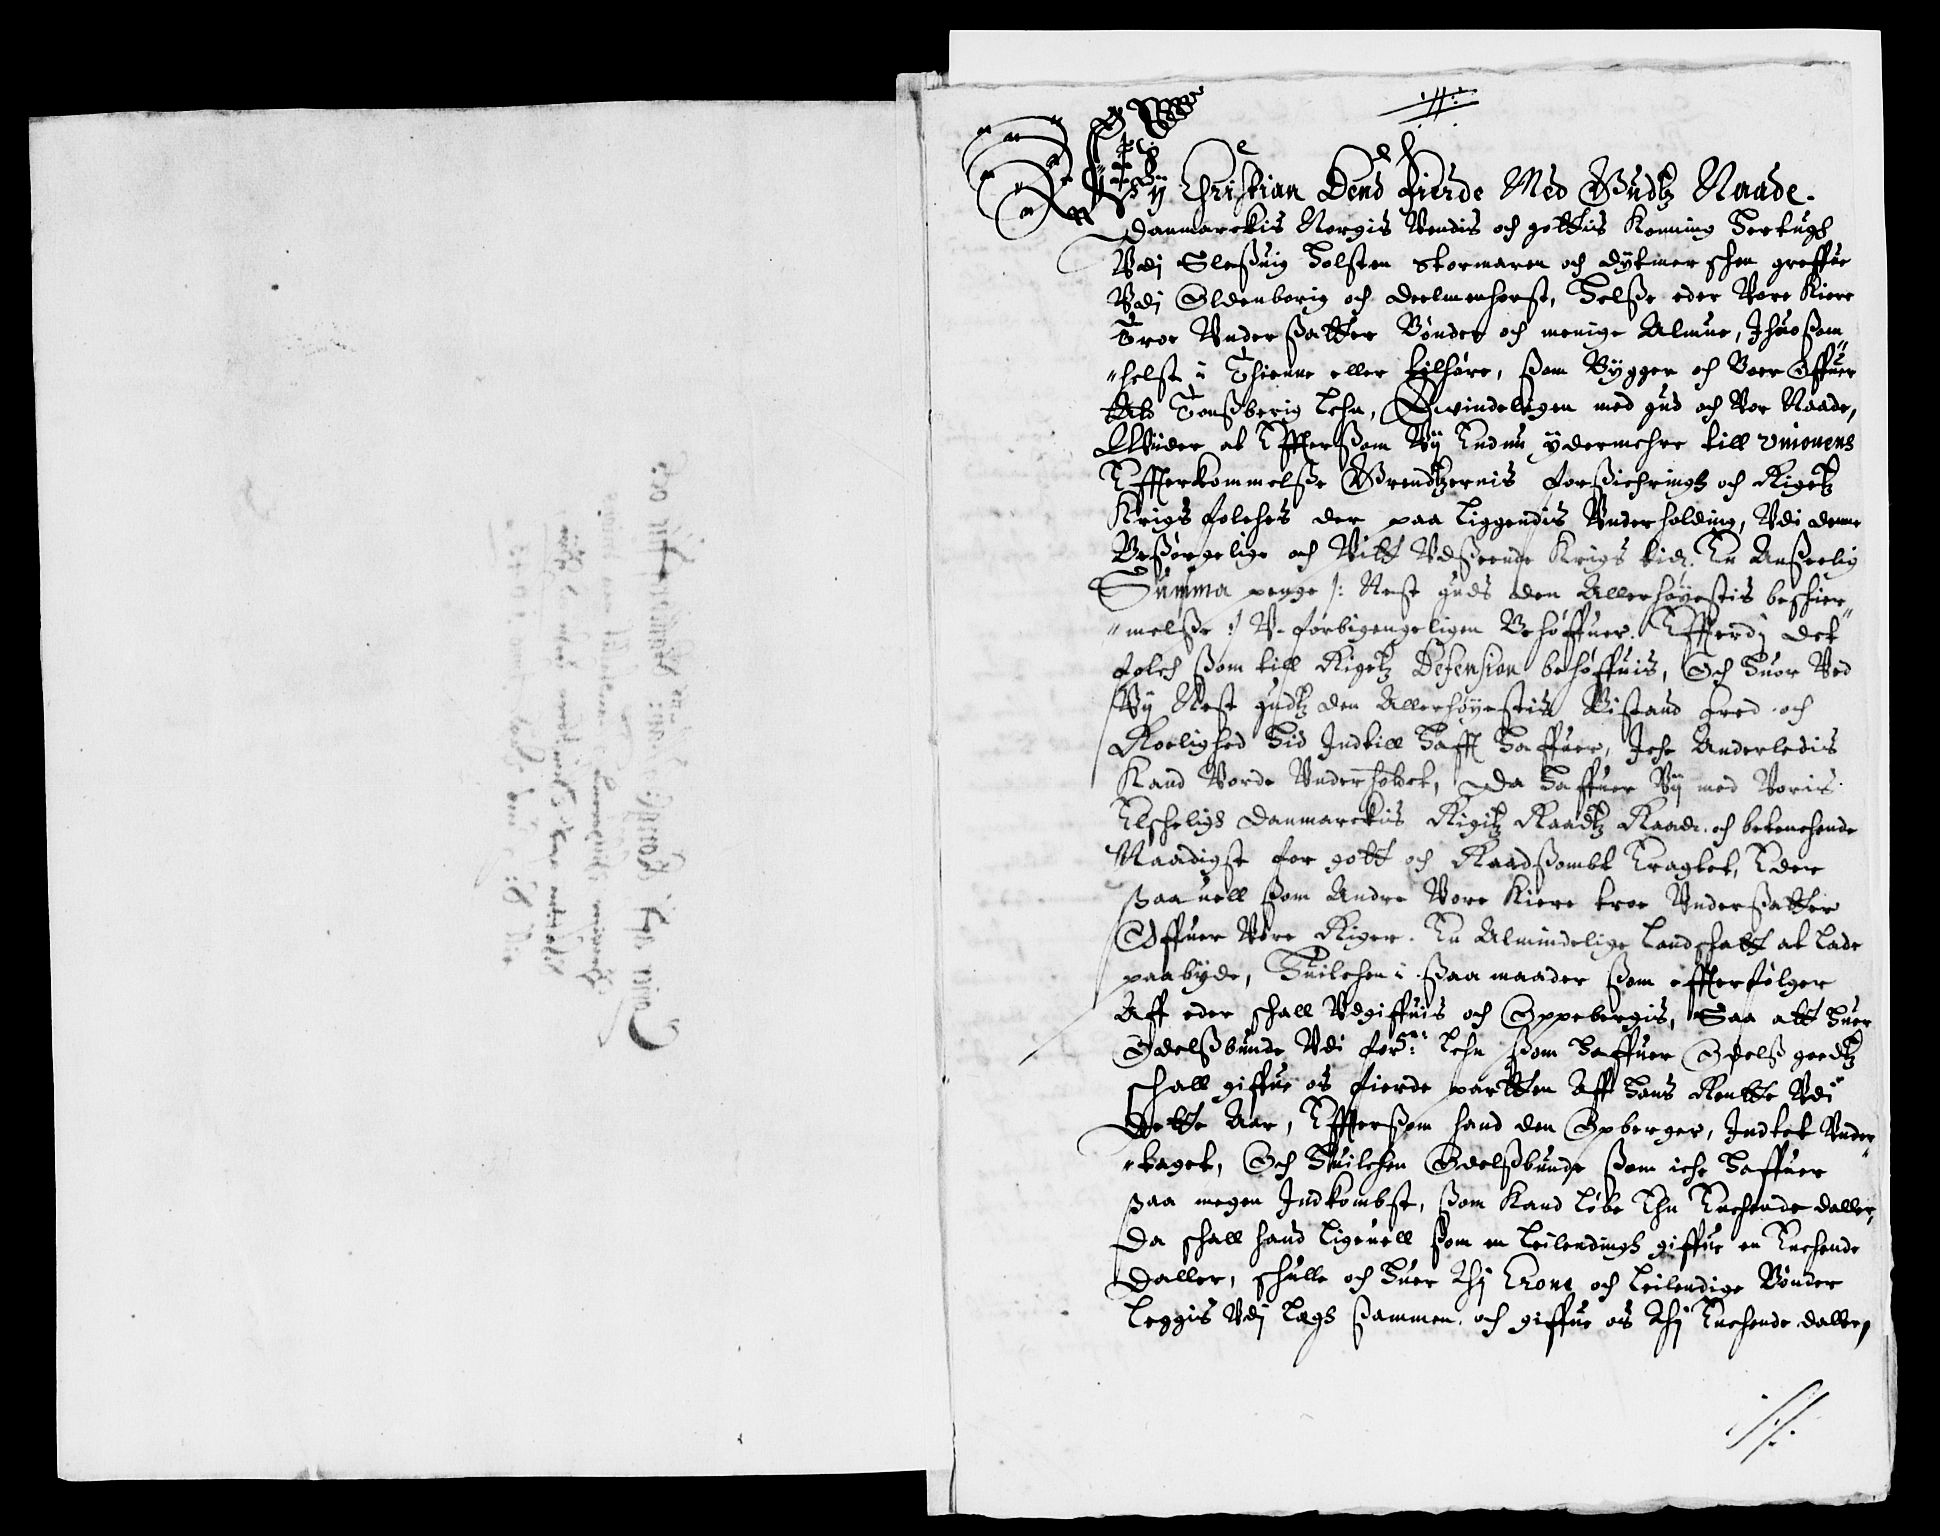 Wij Christian Dend Fierde Med Gudtz Naade.
Danmarckis Norgis Vendis och gottis Konning Hertugh
Vdj Slesßuig Holsten Stormaren och Dytmerschen greffue
Vdj Oldenborig och Deelmenhorst, Helße eder Vore Kiere
Troe Vnderßatter Bønder och menige Almue, Ihuoßom
helst i Thienne eller tilhøre, ßom Bygger och Boer Offuer
Ald Tonßberig Lehn, Ewindeligen med gud och Vor Naade,
Wider at Effterßom Wij Endnu ydermehre till Vnionens
Effterkommelße Grendtzernis forßichringh och Rigetz
Krigs folches der paa liggendis Vnderholding, Vdi denne
Beßørgelige och Vitt Vdßeende Krigs tidr. En Anßeelig
Summa penge /: Nest guds den Allerhøyestis beschier
melße :/ V-forbigengeligen Behøffuer. Effterdj det
folch ßom till Rigetz Defension behøffuis, Och Huor Ved
Wij Nest gudtz den Allerhøyestis Bistand fred och
Roelighed Hid Indtill Hafft Haffuer, Iche Anderledis
Kand Vorde Vnderholdet, Da Haffuer Wij med Voris
Elscheligh Danmarckis Rigitz Raadtz Raadr. och betenchende
Naadigst for gott och Raadßombt Eragtet, Eder
ßaauell ßom Andre Vore Kiere troe Vnderßatter
Offuer Vore Riger. En Almindelige Landschatt at lade
paabyde, Huilchen i ßaa maader ßom effterfølger
Aff eder schall Vdgiffuis och Oppebergis, Saa att Huer
Odelßbunde Vdi fordn: Lehn ßom Haffuer Odelß goedtz
schall giffue os fierde partten Aff Hans Rentte Vdi
Dette Aar, Effterßom hand den Opberger, Indtet Vnder
taget, Och Huilchen Odelßbunde ßom iche Haffuer
ßaa megen Indkombst, ßom Kand løbe Ehn Enchende daller,
Da schall hand ligeuell ßom en Leilendingh giffue en Enchende
Daller, schulle och Huer Thj Crone och Leilendige Bønder
Leggis Vdj Lægh ßammen. och giffue os Thj Enchende daller,